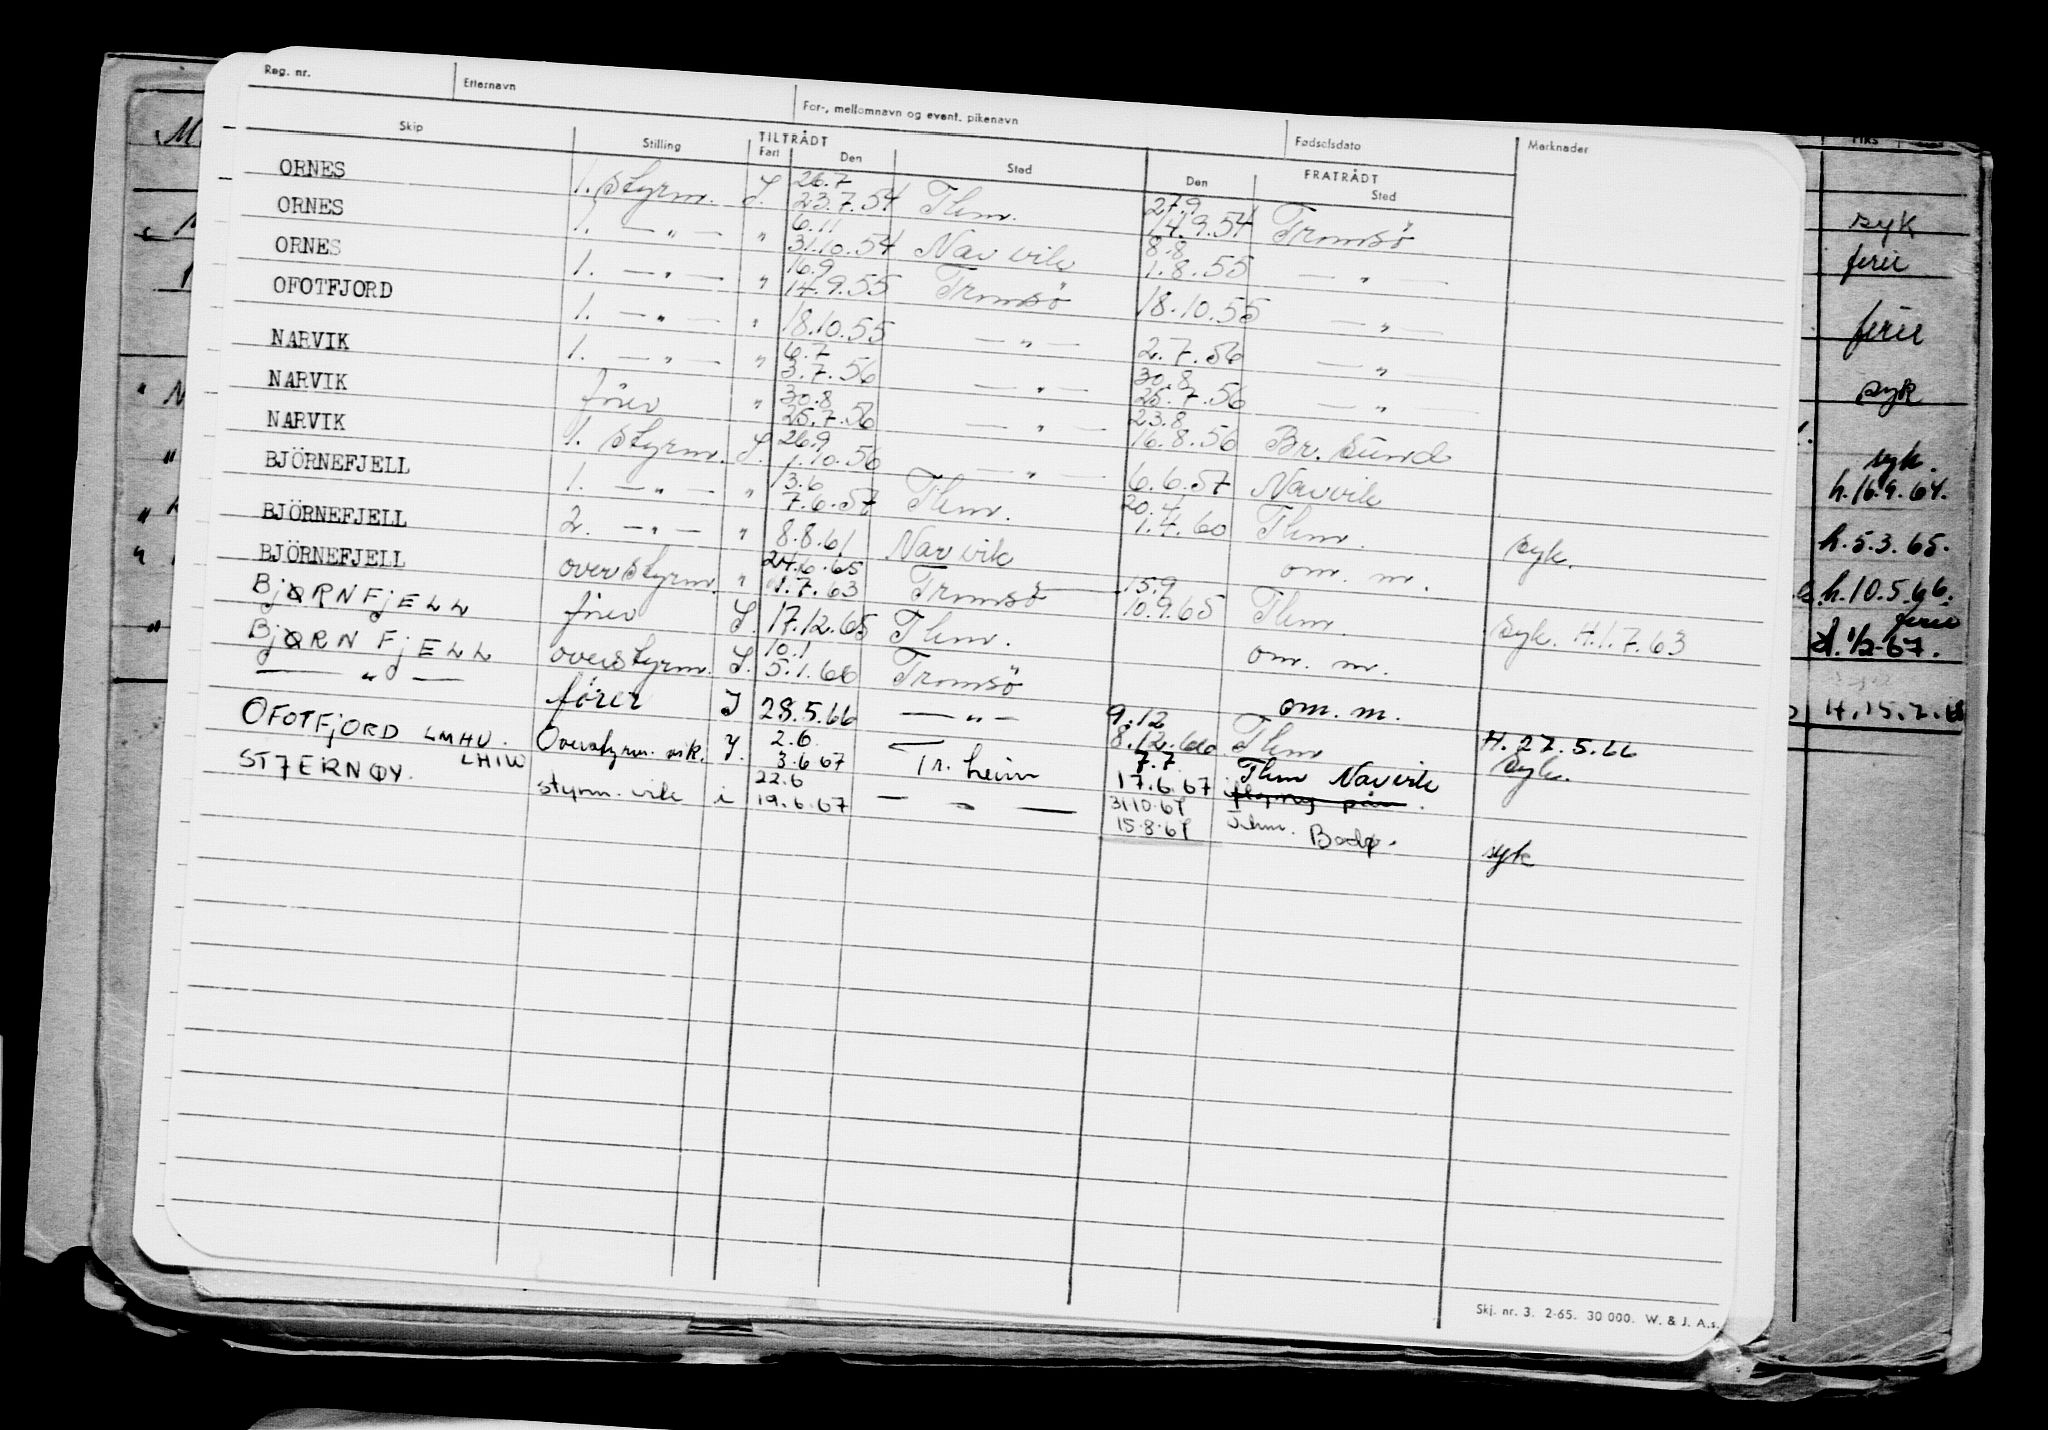 Reg. nr. Etternavn For-, mellomnavn og event. pikenavn Fødselsdato Merknader
Skip Stilling TILTRÅDT FRATRÅDT
Fart Den Sted Den Sted
ORNES 1. Styrm. I. 26.7 23.7.54 Thm. 27.9 14.9.54 Tromsö
ORNES 1. — " — " 6.11 31.10.54 Narvik 8.8 1.8.55 — " —
ORNES 1. — " — " 16.9 14.9.55 Tromsö 18.10.55 — " —
OFOTFJORD 1. — " — " 18.10.55 — " — 2.7.56 — " —
NARVIK 1. — " — " 6.7 3.7.56 — " — 30.8 25.7.56 — " —
NARVIK förer " 30.8 25.7.56 — " — 23.8 16.8.56 Br. sund
NARVIK 1. Styrm. I. 26.9 1.10.56 — " — 6.6.57 Narvik
BJÖRNEFJELL 1. — " — " 13.6 7.6.57 Thm. 20.4 1.4.60 Thm. syk.
BJÖRNEFJELL 2. — " — " 8.8.61 Narvik om. m.
BJÖRNEFJELL overstyrm. " 24.6.65 11.7.63 Tromsö 15.9 10.9.65 Thm. syk. H.1.7.63
BjØRNFjELL förer I. 17.12.65 Thm. om. m.
BjØRNFjELL overstyrm. I. 10.1 5.1.66 Tromsö
— " — fører I 28.5.66 — " — 9.12 8.12.66 om. m. Thm H. 27.5.66 syk.
OFOTFjORD LMHU. Overstyrm. vik. I. 2.6 3.6.67 Tr.heim 7.7 17.6.67 Thm Narvik
STJERNØY. LHIW styrm. vik i 22.6 19.6.67 — " — 31.10.67 15.8.67 Thm. Bodø. syk
Skj. nr. 3. 2-65. 30 000. W. & J. A.s.
syk
ferie
ferie
syk
syk.
h.16.9.64.
h.5.3.65.
h.10.5.66.
ferie
1/2-67.